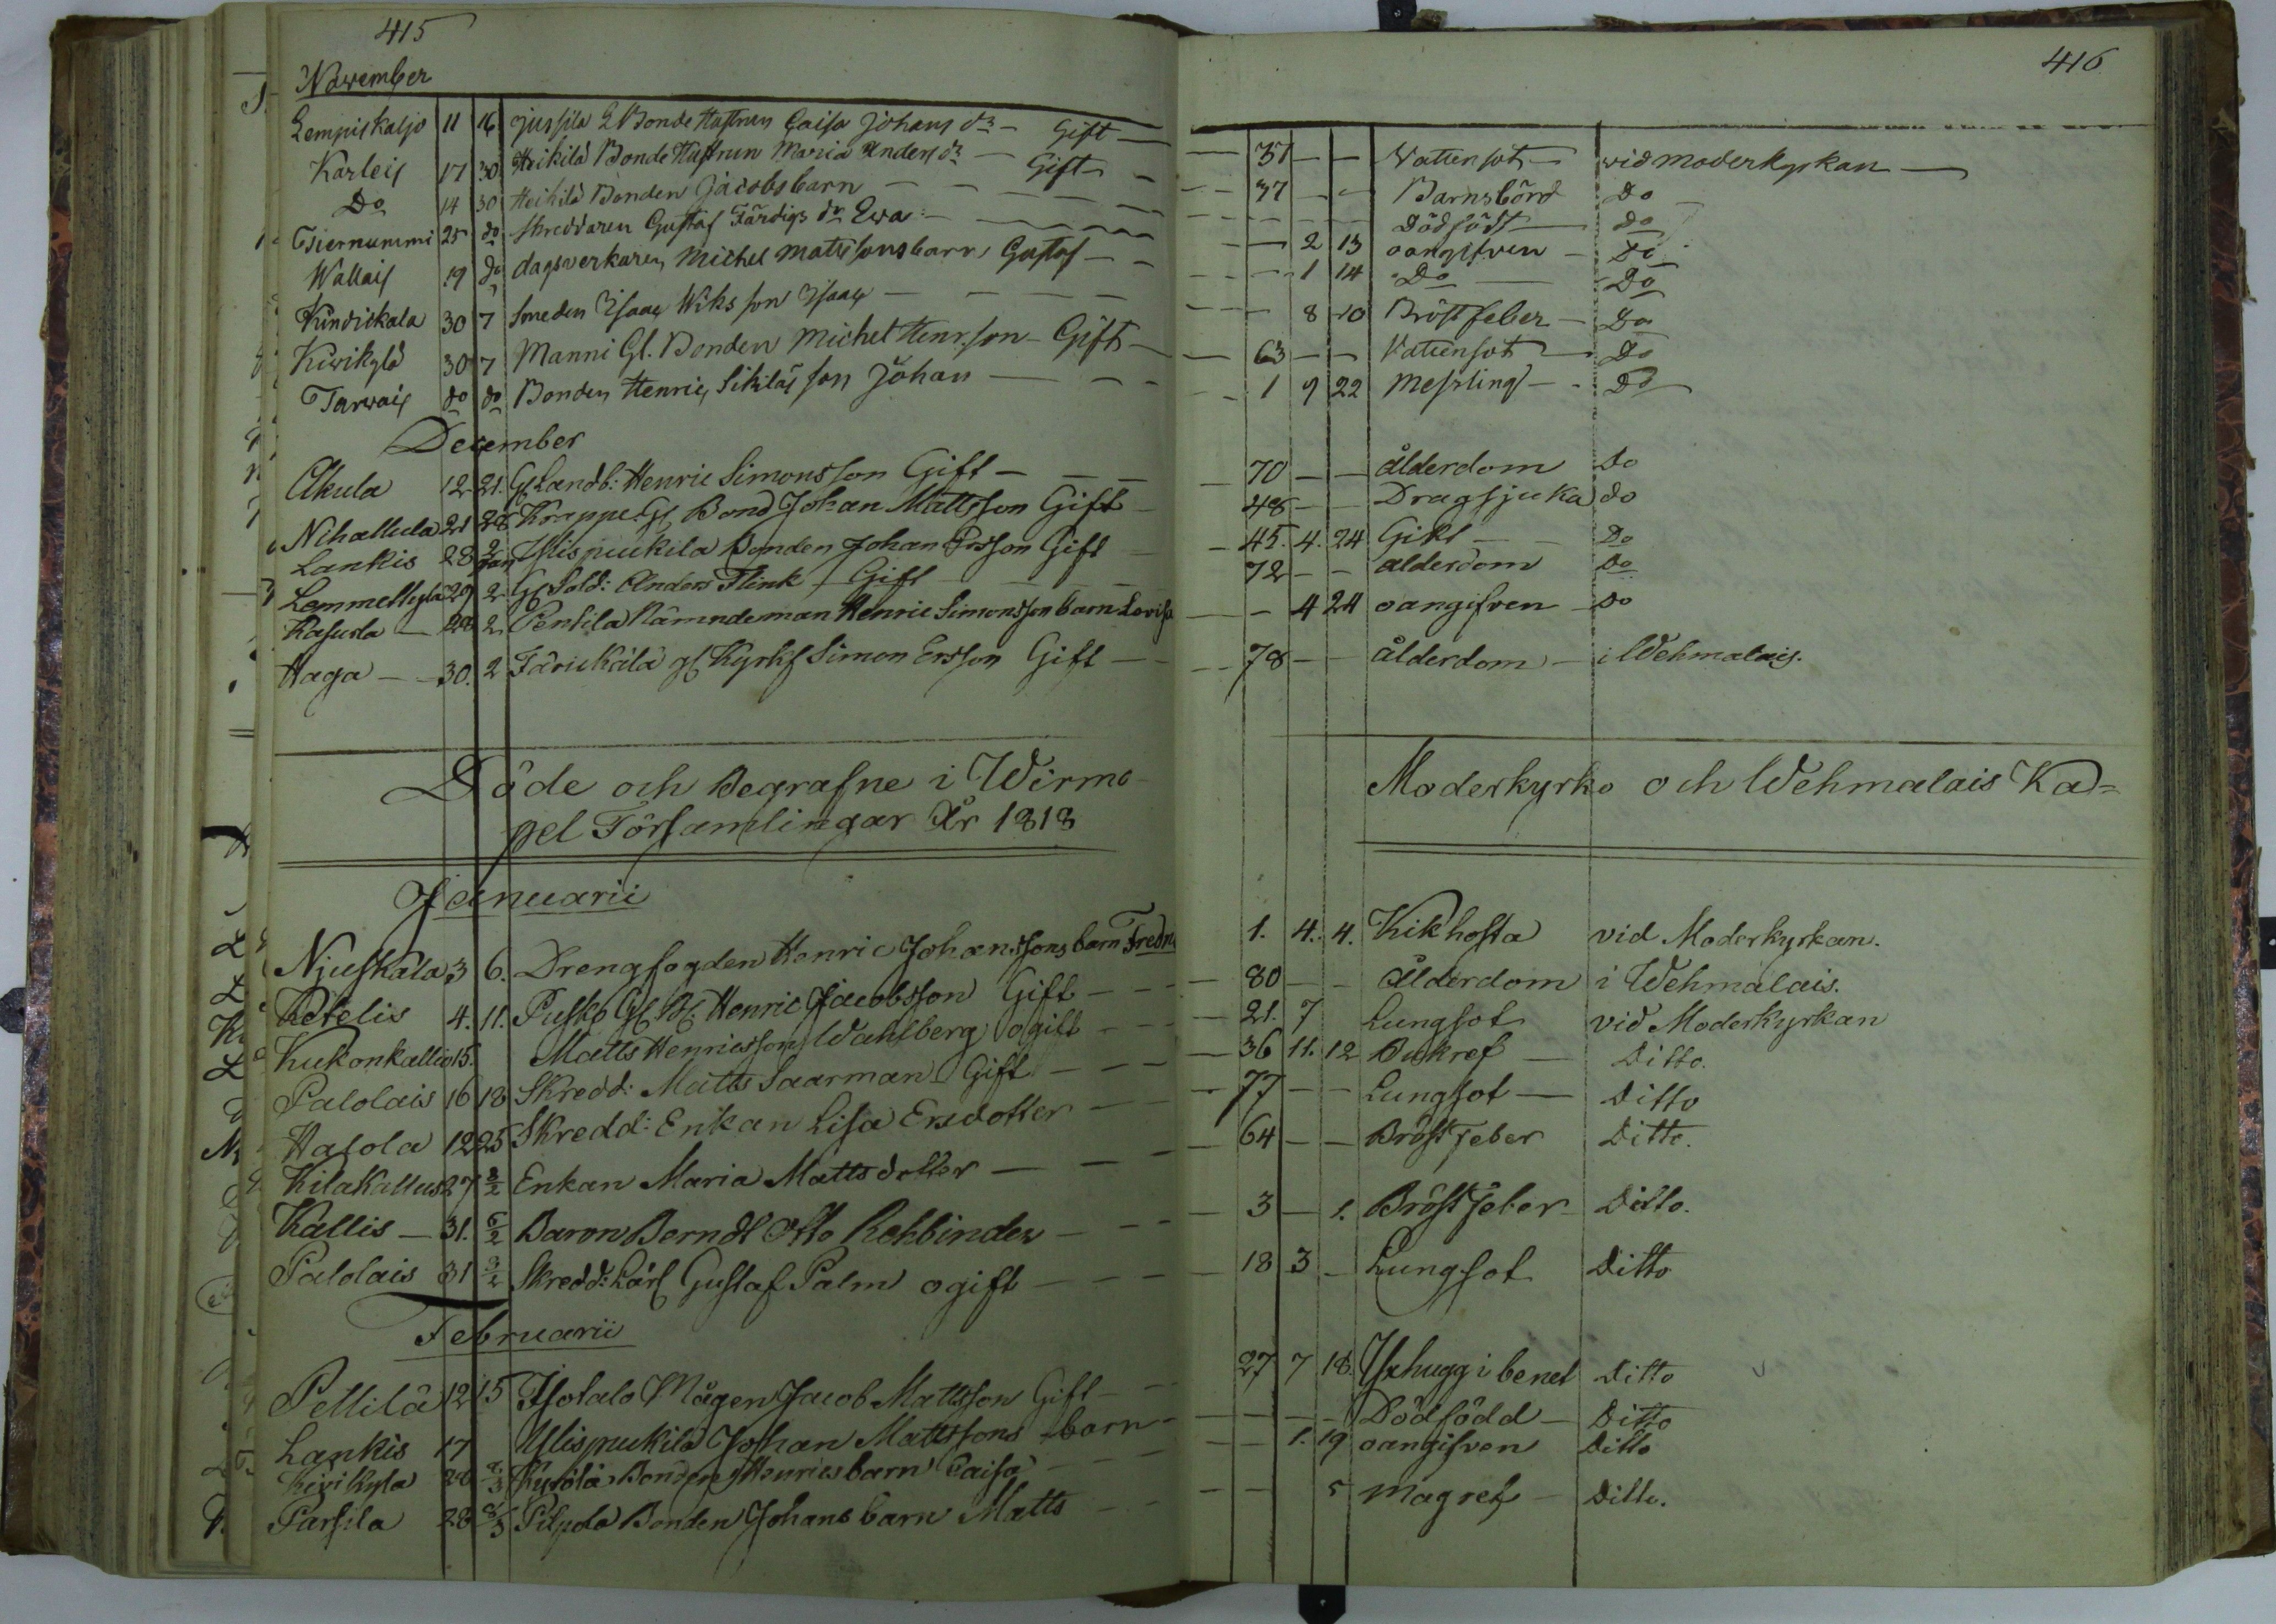 415
November
Lempiskaljo 11 16 Jussila Bonde Hustrun Caisa Johans dr Gift
Karleis 17 30 Heikilä Bonde Hustrun Maria Anders dr Gift
Do 14 30 Heikilä Bonden Jacobs barn
Tiernummi 25 do Skreddaren Gustaf Färdigs dr Ewa
Wallais 19 do dagsverkaren Michel Mattssons barn Gustaf
Kindiskala 30 7 Smeden Isaac Wiks son Isaac
Kivikylä 30 7 Manni Gl. Bonden Michel Henrson Gift
Tarvais do do Bonden Henric Sikiläs son Johan
December
Akula 12 21. Gl Landb: Henric Simonsson Gift
Nihattula 21 28 Krappe Gl Bond Johan Mattsson Gift
Lankis 28 2 Jan Ylispuukila Bonden Johan Ersson Gift
Lemmettyla 29 2 Gl Sold: Anders Flink Gift
Kasurla 28 2 Pentila Nämndeman Henric Simonsson barn Lovisa
Haga 30. 2 Färickälä gl Kyrkf Simon Ersson Gift
Döde och Begrafne i Wirmo
pel Församlingar År 1818
Januarii
Njuskala 3 6. Drengfogden Henric Johanssons barn Fredric
Ketelis 4. 11. Pusko Gl B: Henric Jacobsson Gift
Kukonkallio 15. Matts Henricsson Wahlberg ogift
Palolais 16 18 Skredd: Matts Saarman Gift
Hasola 12 25 Skredd: Enkan Lisa Ersdotter
Kilakallus 27 2/2 Enkan Maria Mattsdotter
Kallis 31. 5/2 Baron Berndt Otto Rehbinder
Palolais 31 3/2 Skredd: Lärl Gustaf Palm ogift
Februarii
Pettilä 12 15 Isotalo Mågen Jacob Mattsson Gift
Lankis 17 Ylispuukila Johan Mattssons barn
Kivikyla 28 8/3 Kyrölä Bonden Henrics barn Caisa
Parsila 28 8/3 Pilpola Bonden Johans barn Matts
416
37 Vattensot vid moderkyrkan
37 Barnsbörd Do
Dödfödt do
2 13 oangifven Do
1 14 Do Do
8 10 Bröstfeber Do
63 Vattensot Do
1 9 22 Messling Do
70 ålderdom Do
48 Dragsjuka do
45. 4. 24 Gikt Do
72 alderdom Do
4 24 oangifven Do
78 ålderdom i Wehmalais.
Moderkyrko och Wehmalais Ka=
1. 4. 4. Kikhosta vid Moderkyrkan.
80 Ålderdom i Wehmalais.
21. 7 Lungsot vid Moderkyrkan
36 11. 12 Bukref Ditto.
77 Lungsot Ditto
64 Bröstfeber Ditto.
3 1. Bröstfeber Ditto.
18 3 Lungsot Ditto
27 7 18. Yxhugg i benet Ditto
Dödfödd Ditto
1. 19 oangifven Ditto
5 magref Ditto.